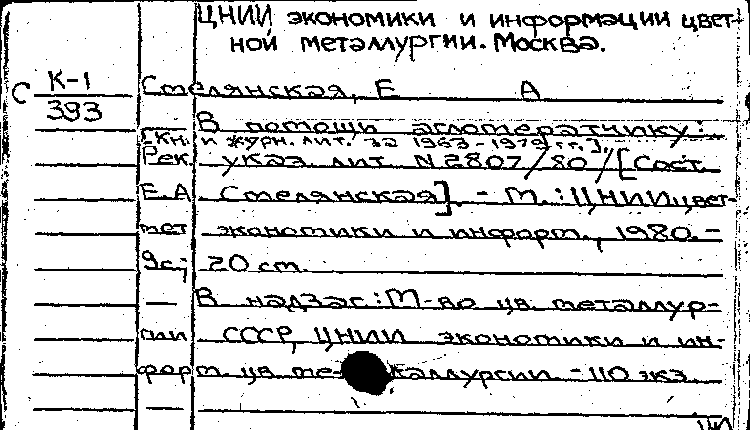 ЦНИИ экономики и информации цвет-
ной металлургии. Москва.
С К-1
393
Стелянская, Е А
В помощи агломератчику:
[кн. и журн. лит. за 1963-1979 гг.].
Рек. указ. лит. N2807/80/[Сост.
Е.А Стелянская]. - М.: ЦНИИцвет-
мет экономики и информ., 1980.-
9с; 20 см.
— В надзаг: М-во цв. металлур-
гии СССР, ЦНИИ экономики и ин-
форм. цв. металлургии - 110 экз.